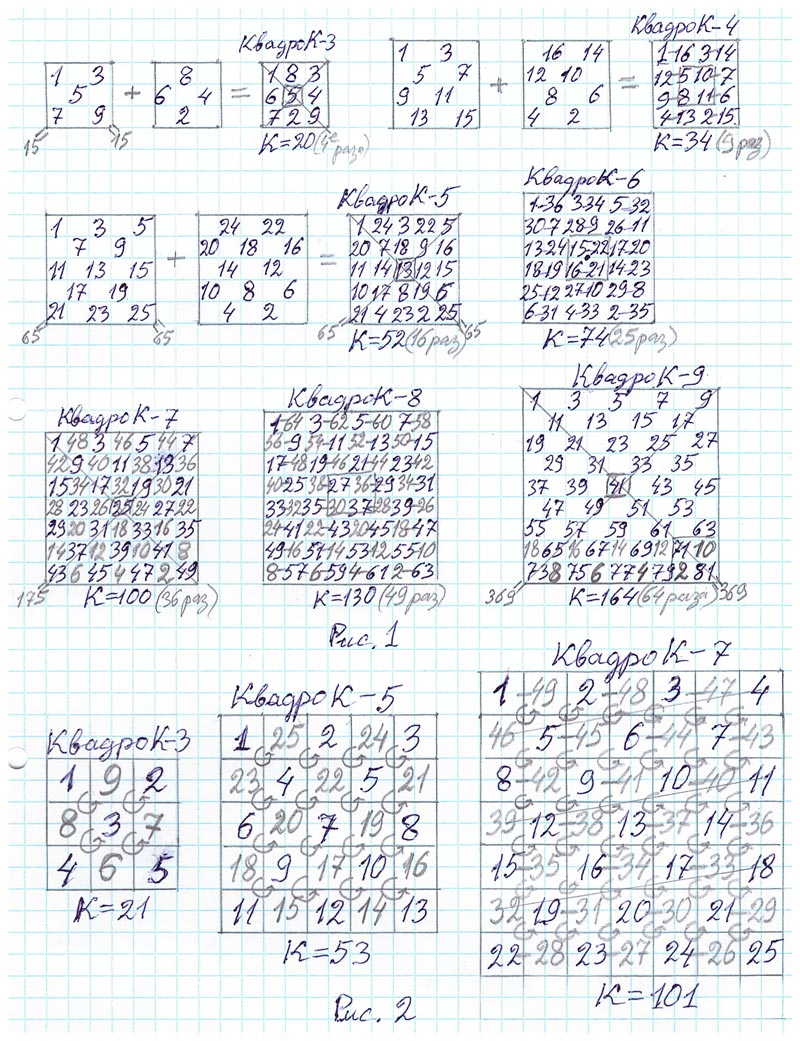 КвадроК-3
1 3
5
7 9
15 15
+
8
6 4
2
=
1 8 3
6 5 4
7 2 9
К=20 (4е раза)
КвадроК-4
1 3
5 7
9 11
13 15
+
16 14
12 10
8 6
4 2
=
1-16 3-14
12-5 10-7
9-8 11-6
4-13 2-15
К=34 (9 раз)
КвадроК-5
1 3 5
7 9
11 13 15
17 19
21 23 25
65 65
+
24 22
20 18 16
14 12
10 8 6
4 2
=
1 24 3 22 5
20 7 18 9 16
11 14 13 12 15
10 17 8 19 6
21 4 23 2 25
65 65
К=52 (16 раз)
КвадроК-6
1-36 3 34 5-32
30-7 28-9 26-11
13-24 15-22 17 20
18-19 16-21 14-23
25-12 27-10 29-8
6-31 4-33 2-35
К=74 (25 раз)
КвадроК-7
1 48 3 46 5 44 7
42 9 40 11 38 13 36
15 34 17 32 19 30 21
28 23 26 25 24 27 22
29 20 31 18 33 16 35
14 37 12 39 10 41 8
43 6 45 4 47 2 49
175
К=100 (36 раз)
КвадроК-8
1-64 3-62 5-60 7 58
56-9 54-11 52-13 50-15
17-48 19-46 21 44 23 42
40-25 38-27 36-29 34-31
33 32 35-30 37-28 39-26
24-41 22-43 20 45 18-47
49-16 51-14 53 12 55-10
8-57 6 59 4-61 2-63
К=130 (49 раз)
КвадроК-9
1 3 5 7 9
11 13 15 17
19 21 23 25 27
29 31 33 35
37 39 41 43 45
47 49 51 53
55 57 59 61 63
18 65 16 67 14 69 12 71 10
73 8 75 6 77 4 79 2 81
369 369
К=164 (64 раза)
Рис. 1
КвадроК-3
1 9 2
8 3 7
4 6 5
К=21
КвадроК-5
1 25 2 24 3
23 4 22 5 21
6 20 7 19 8
18 9 17 10 16
11 15 12 14 13
К=53
КвадроК-7
1-49 2-48 3-47 4
46 5-45 6-44 7-43
8-42 9-41 10-40 11
39 12-38 13-37 14-36
15-35 16-34 17-33 18
32 19-31 20-30 21-29
22-28 23-27 24-26 25
К=101
Рис. 2